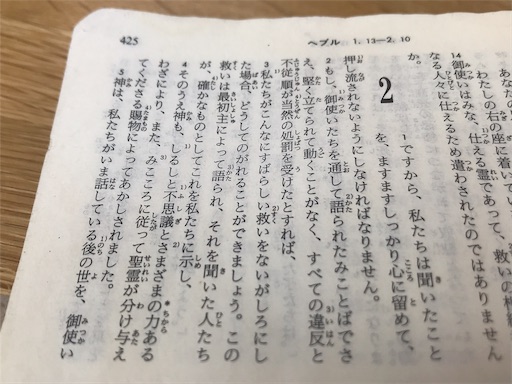 425
ヘブル 1.13―2.10
わたしの右の座に着いて
14御使いはみな、仕える霊であって、救いの相続
なる人々に仕えるため遣わされたのではありません
か。
2
1ですから、私たちは聞いたこと
を、ますますしっかり心に留めて、
押し流されないようにしなければなりません。
2もし、御使いたちを通して語られたみことばでさ
え、堅く立てられて動くことがなく、すべての違反と
不従順が当然の処罰を受けたとすれば、
3私たちがこんなにすばらしい救いをないがしろにし
た場合、どうしてのがれることができましょう。この
救いは最初主によって語られ、それを聞いた人たち
が、確かなものとしてこれを私たちに示し、
4そのうえ神も、しるしと不思議とさまざまの力ある
わざにより、また、みこころに従って聖霊が分け与え
てくださる賜物によってあかしされました。
5神は、私たちがいま話している後の世を、御使い